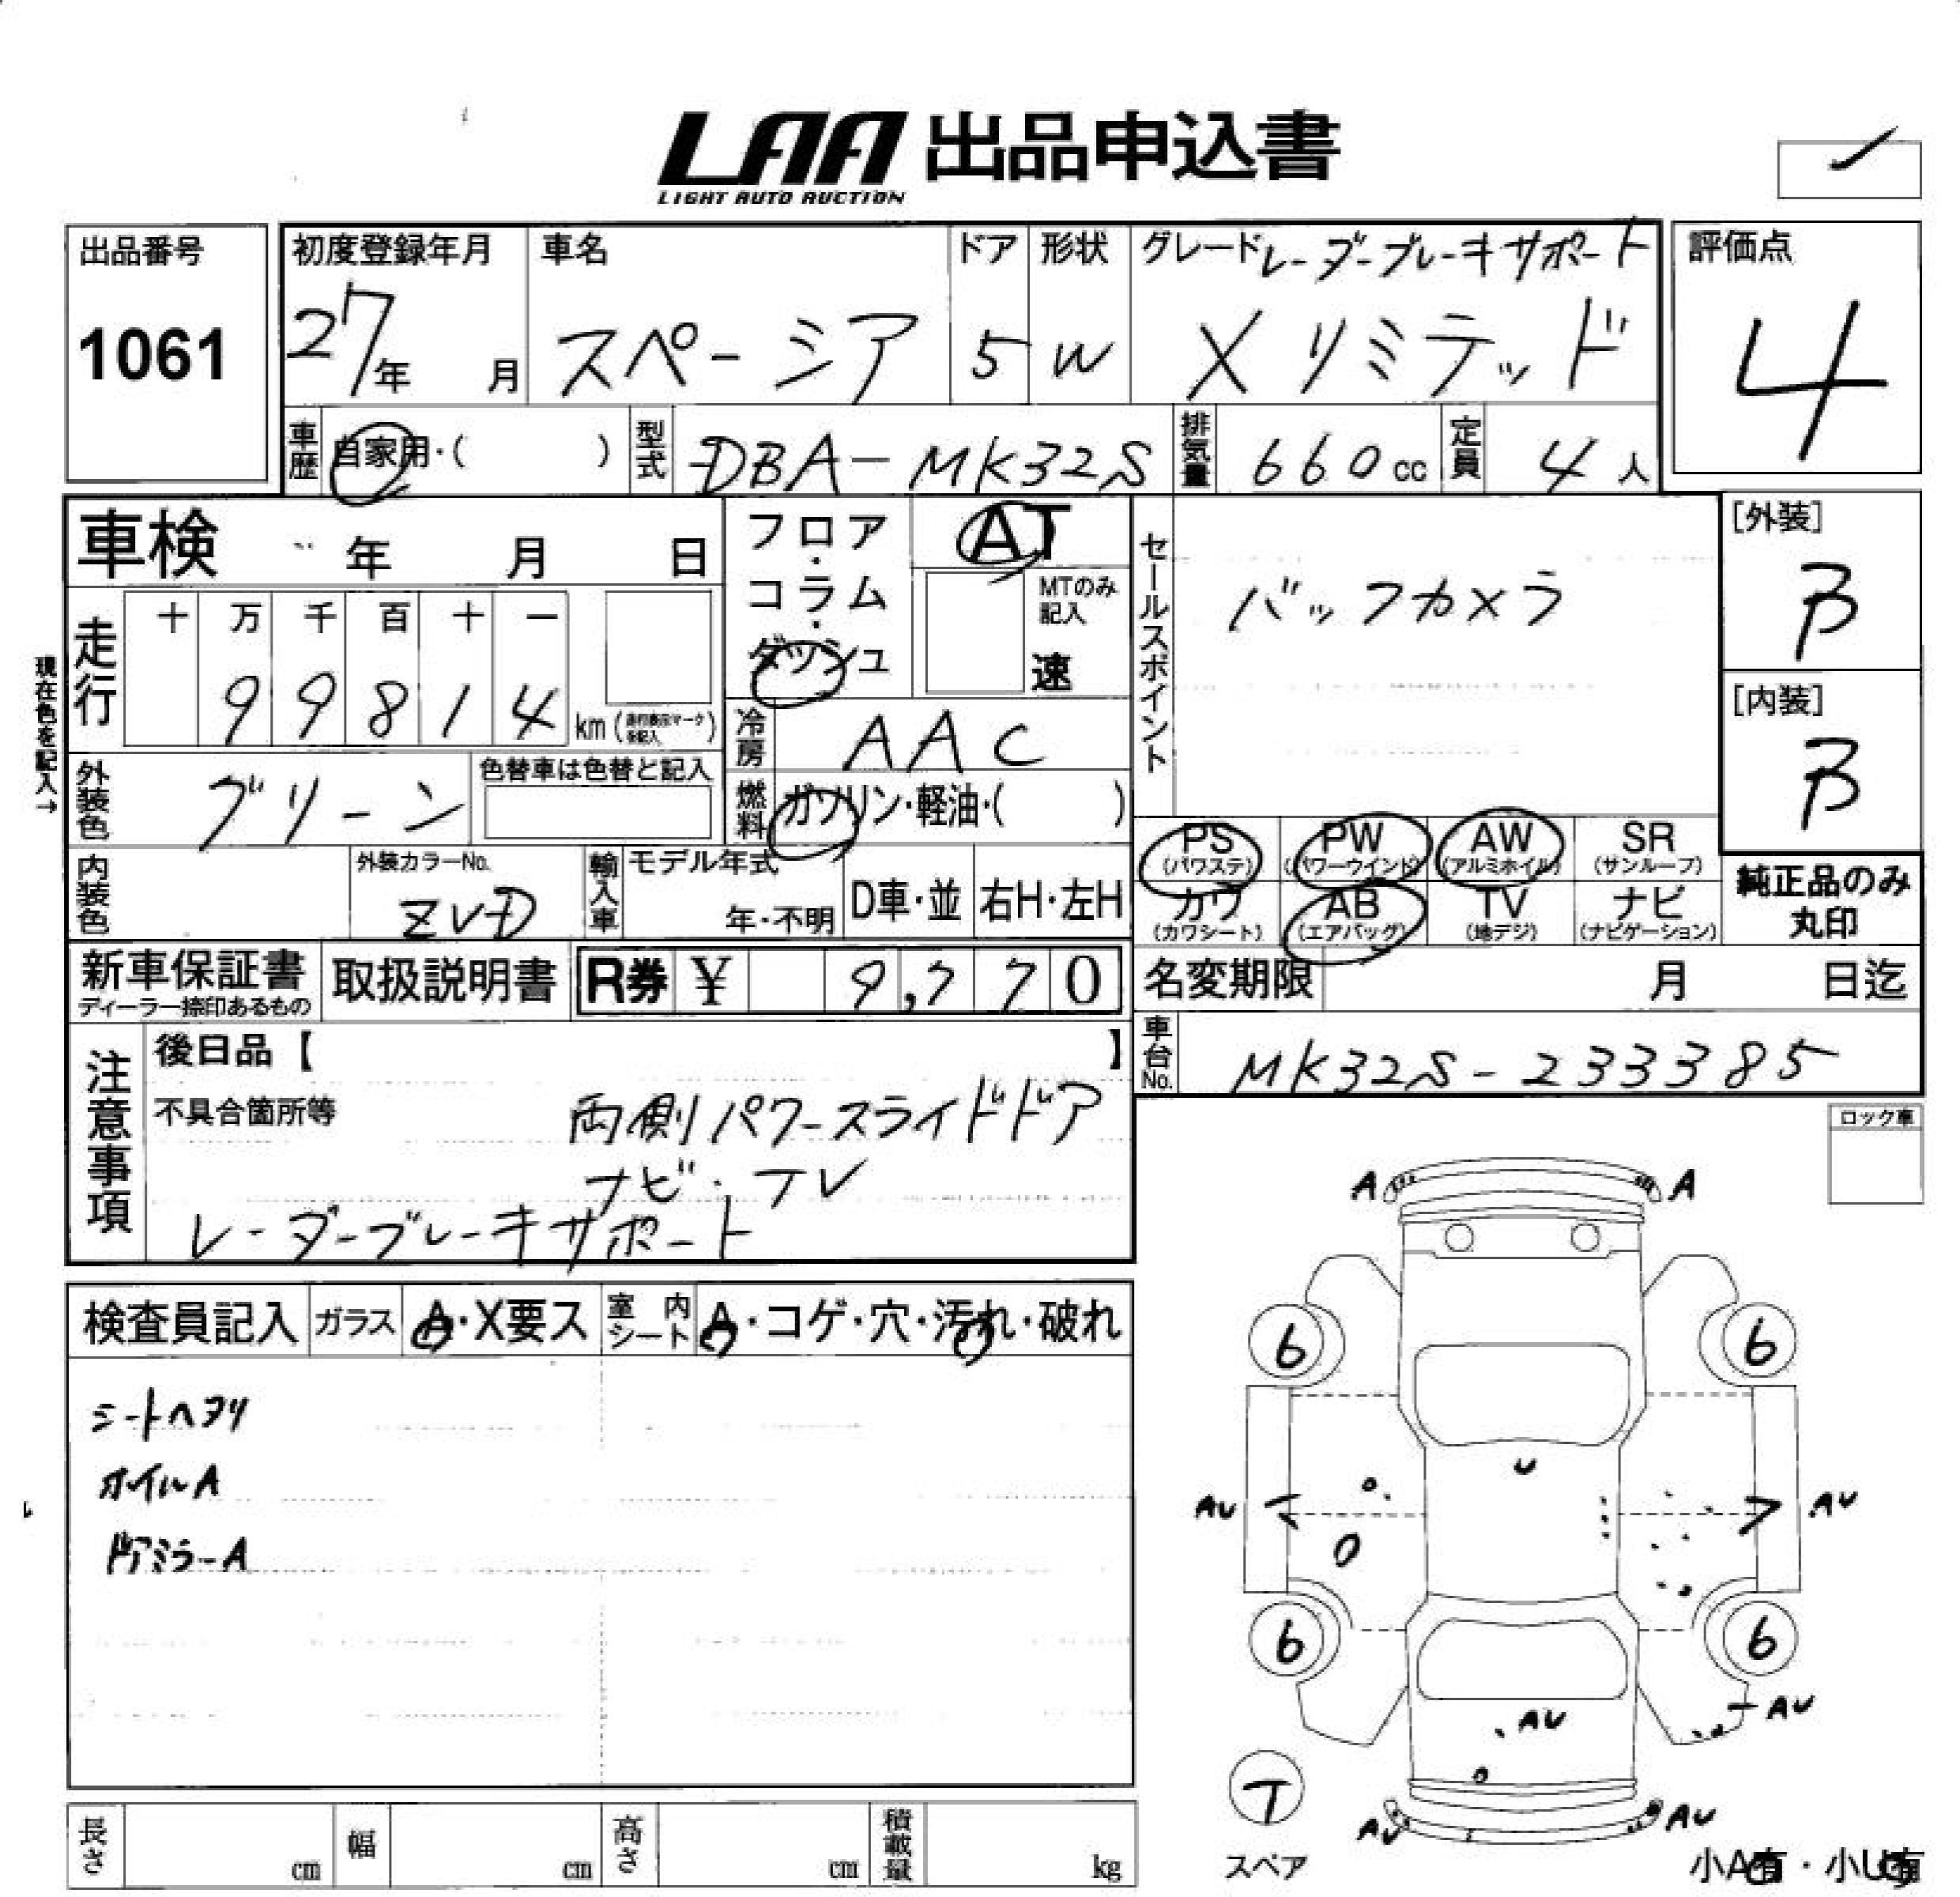 LAA 出品申込書
LIGHT AUTO AUCTION
出品番号
1061
初度登録年月
27年 月
車名
スペーシア
ドア
5
形状
W
グレード レーダーブレーキサポート
Xリミテッド
評価点
4
車歴 自家用・( )
型式 DBA-MK32S
排気量 660cc
定員 4人
車検 年 月 日
フロア・コラム・ダッシュ
AT
MTのみ記入
速
セールスポイント
バックカメラ
[外装]
B
[内装]
B
現在色を記入→
走行
十 万 千 百 十 一
9 9 8 1 4 km
冷房 AAC
外装色 グリーン
色替車は色替と記入
燃料 ガソリン・軽油・( )
PS (パワステ)
PW (パワーウインド)
AW (アルミホイル)
SR (サンルーフ)
カワ (カワシート)
AB (エアバッグ)
TV (地デジ)
ナビ (ナビゲーション)
純正品のみ丸印
内装色
外装カラーNo.
ZVD
輸入車
モデル年式
年・不明
D車・並
右H・左H
新車保証書
ディーラー捺印あるもの
取扱説明書
R券 ¥ 9,770
名変期限 月 日迄
車台No. MK32S-233385
注意事項
後日品【 】
不具合箇所等
両側パワースライドドア
ナビ・TV
レーダーブレーキサポート
ロック車
検査員記入
ガラス A・X要ス
室内シート A・コゲ・穴・汚れ・破れ
シートヘタリ
ホイルA
ドアミラーA
A A
6 6
U
AU AU
6 6
AU
AU
T
スペア
AU AU
小A有・小U有
長さ cm
幅 cm
高さ cm
積載量 kg